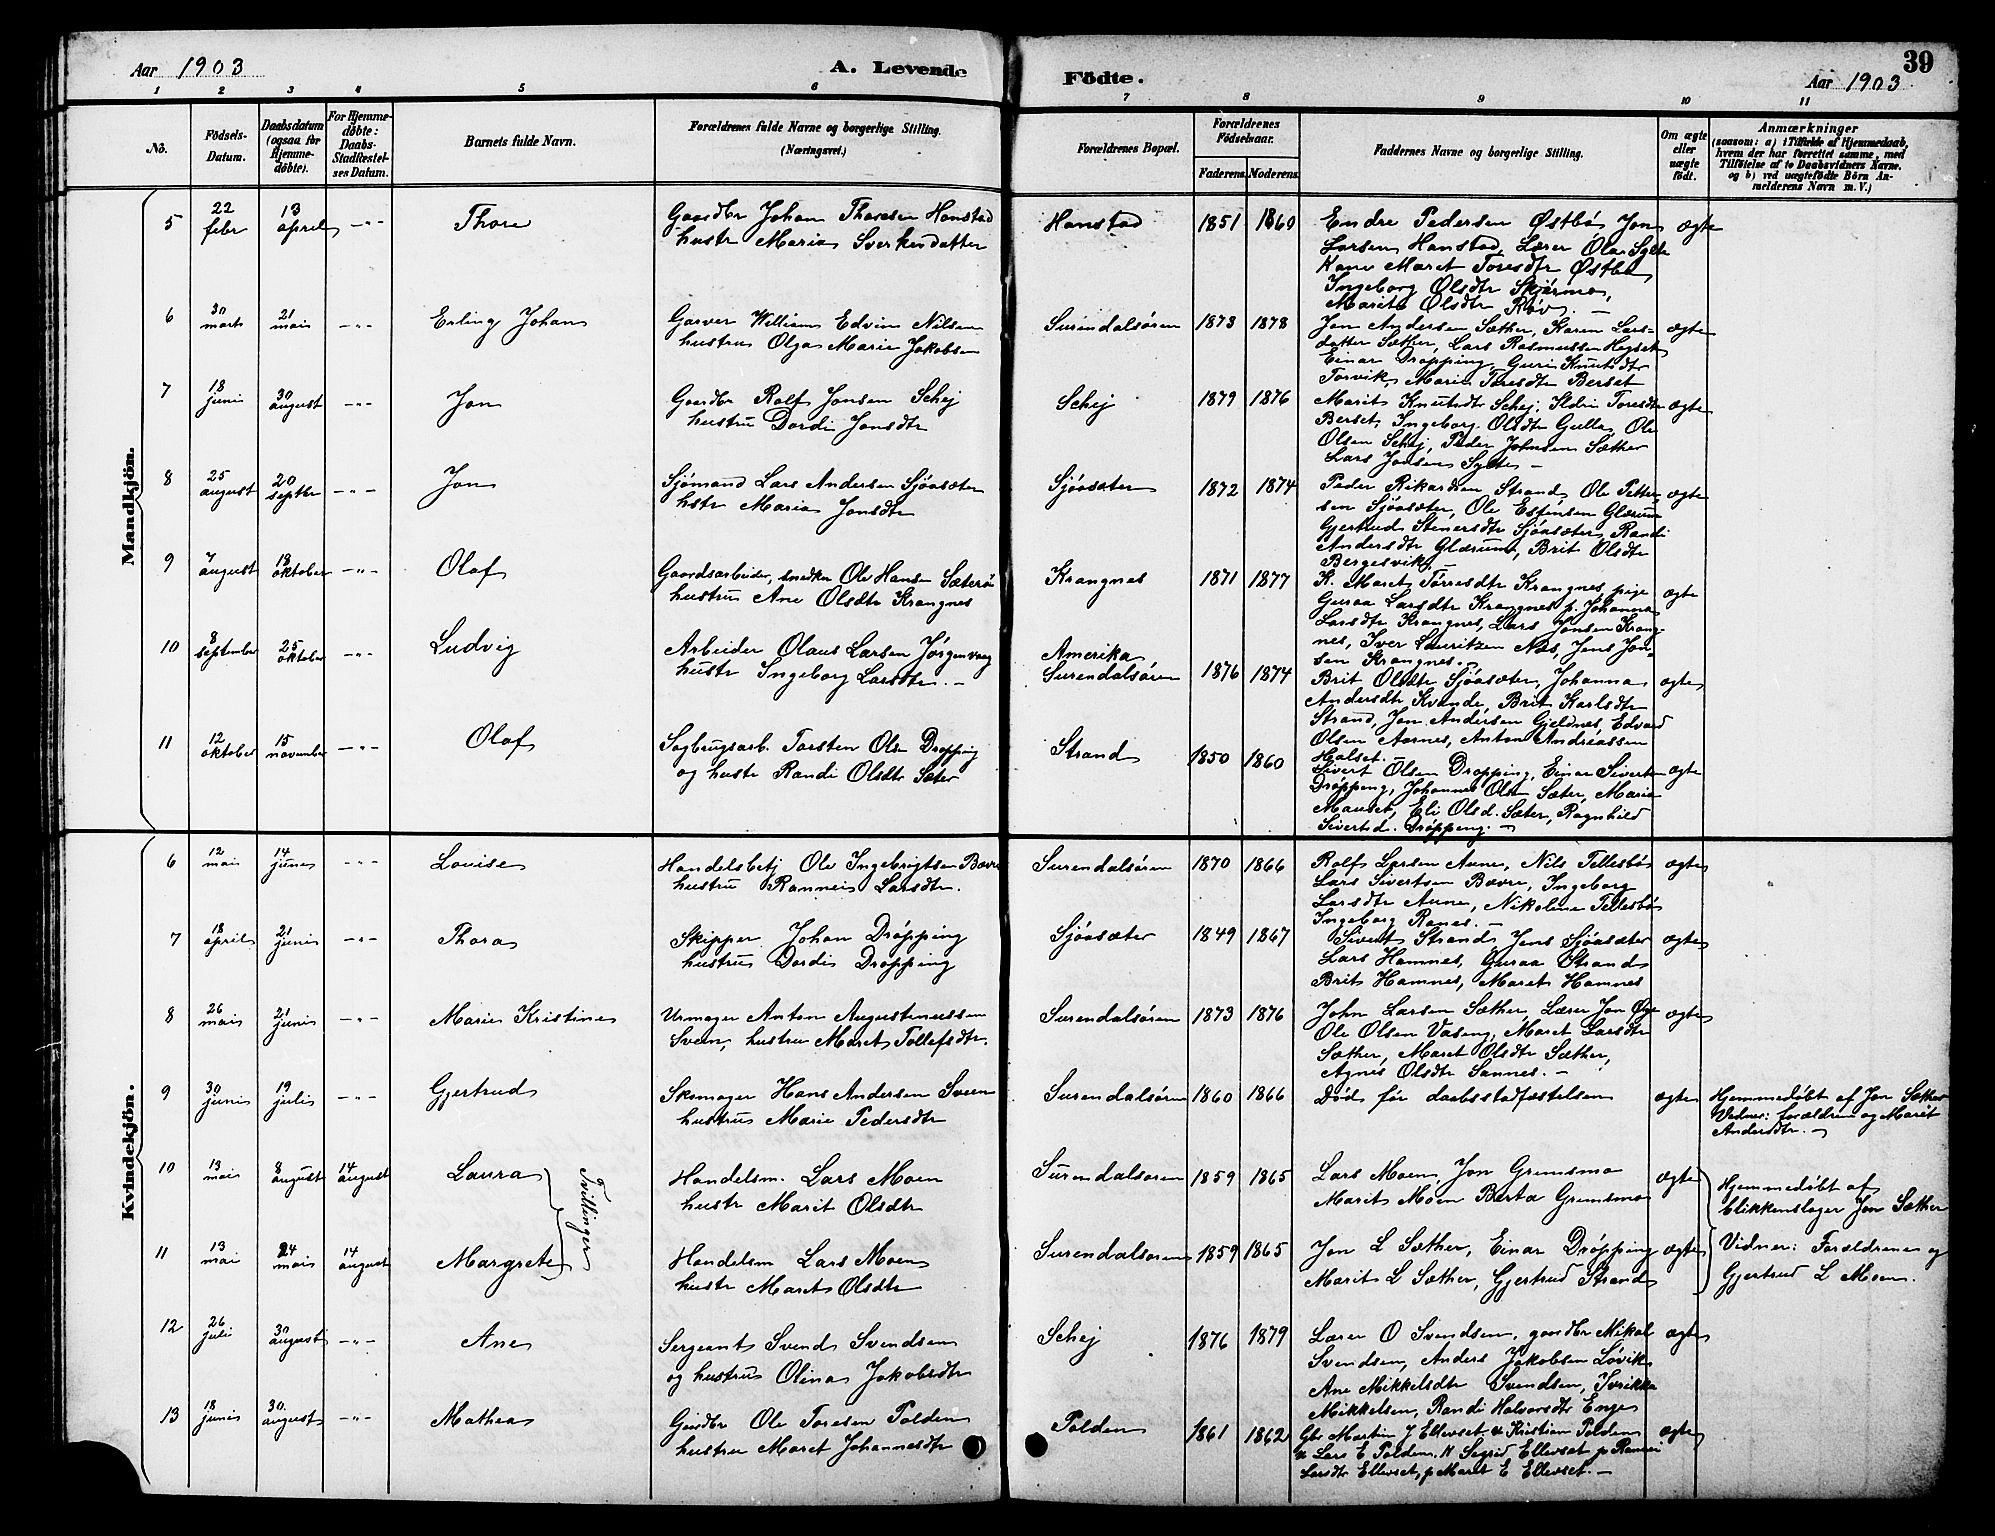 Aar 1903
A. Levende
Födte.
Aar 1903
39
1 2 3 4 5 6 7 8 9 10 11
No.
Födsels-
Datum.
Daabsdatum
(ogsaa for
Hjemme-
døbte).
For Hjemme-
døbte:
Daabs-
Stadfæstel-
ses Datum.
Barnets fulde Navn.
Forældrenes fulde Navne og borgerlige Stilling.
(Næringsvei.)
Forældrenes Bopæl.
Forældrenes
Födselsaar.
Faderens. Moderens.
Faddernes Navne og borgerlige Stilling.
Om ægte
eller
uægte
födt.
Anmærkninger
(saasom: a) i Tilfælde af Hjemmedaab,
hvem der har forrettet samme, med
Tilföielse af to Daabsvidners Navne.
og b) ved uægtefödte Börn An-
melderens Navn m. V.)
Mandkjön.
5 22 febr 13 april -"- Thore
Gaardbr Johan Thoresen Honstad
hustr Maria Sverkesdatter
Honstad 1851 1860
Endre Pedersen Østbö Jon
Larsen Honstad, Lærer Ola Sylte
Kone Maret Toresdtr Østbö
Ingeborg Olsdtr Skjermo,
Marit Olsdtr Røv. —
ægte
6 30 marts 21 mai -"- Erling Johan
Garver William Edvin Nilsen
hustru Olga Marie Jakobsen
Surendalsøren 1873 1878
Jon Andersen Sæther, Karen Lars-
datter Sæther, Lars Rasmussen Hegset
Einar Drøpping, Guri Knutsdtr
Torvik, Marie Toresdtr Berset
ægte
7 18 juni 30 august -"- Jon
Gaardbr Rolf Jonsen Schej
hustru Dordi Jonsdtr
Schej 1879 1876
Marit Knutsdtr Schej, Ildri Toresdtr
Berset, Ingeborg Olsdtr Gulla, Ole
Olsen Schej, Peder Johnsen Sæther
Lars Jonsen Sylte —
ægte
8 25 august 20 septbr -"- Jon
Sjømand Lars Andersen Sjøasæter
hstr Maria Jonsdtr
Sjøasæter 1872 1874
Peder Rikardsen Strand, Ole Petter-
sen Sjøasæter, Ole Espensen Glærum
Gjertrud Stenersdtr Sjøasæter, Randi
Andersdtr Glærum, Brit Olsdtr
Bergesvik. —
ægte
9 7 august 18 oktober -"- Olaf
Gaardsarbeider, snedker Ole Hansen Sæterö
hustru Ane Olsdtr Krangnes
Krangnes 1871 1877
K. Maret Torresdtr Krangnes, pige
Guraa Larsdtr Krangnes p. Johanna
Larsdtr Krangnes, Lars Jonsen Krang-
nes, Iver Lauritzen Næs, Jens Jon-
sen Krangnes. —
ægte
10 8 september 25 oktober -"- Ludvig
Arbeider Olaus Larsen Jørgenvaag
hustr Ingeborg Larsdtr. —
Amerika
Surendalsøren 1876 1874
Brit Olsdtr Sjøasæter, Johanna
Andersdtr Kvande, Brit Karlsdtr
Strand, Jon Andersen Gjeldnes, Edvard
Olsen Aarnes, Anton Andreassen
Halset. —
ægte
11 12 oktober 15 november -"- Olaf
Sagbrugsarb. Torsten Olsen Drøpping
og hustr Randi Olsdtr Sæter
Strand 1850 1860
Sivert Olsen Drøpping, Einar Sivertsen
Drøpping, Johannes Olsen Sæter, Maria
Mauset, Eli Olsd. Sæter, Ragnhild
Sivertsd. Drøpping. —
ægte
Kvindekjön.
6 12 mai 14 june -"- Lovise
Handelsbetj Ole Ingebrigtsen Bævre
hustru Rannei Larsdtr.
Surendalsøren 1870 1866
Rolf Larsen Aune, Nils Tellesbö
Lars Sivertsen Bævre, Ingeborg
Larsdtr Aune, Nikoline Tellesbö
Ingeborg Ranes. —
ægte
7 18 april 21 juni -"- Thora
Skipper Johan Drøpping
hustru Dordi Drøpping
Sjøasæter 1849 1867
Sivert Strand, Jens Sjøasæter
Lars Hamnes, Guraa Strand
Brit Hamnes, Maret Hamnes
ægte
8 26 mai 21 juni -"- Marie Kristine
Urmager Anton Augustinussen
Sveen, hustru Maret Tollefsdtr.
Surendalsøren 1873 1876
John Larsen Sæther, Lærer Jon Øye
Ole Olsen Vaseng, Maret Larsdtr
Sæther, Maret Olsdtr Sæther,
Agnes Olsdtr Sannes. —
ægte
9 30 juni 19 juli -"- Gjertrud
Skomager Hans Andersen Sveen
hustru Marie Pedersdtr
Surendalsøren 1860 1866
Död før daabsstadfæstelsen
ægte
Hjemmedøbt af Jon Sæther
Vidner: forældrene og Marit
Andersdtr. —
10 13 mai 8 august 14 august Laura
Handelsm. Lars Moen
hustr Marit Olsdtr
Surendalsøren 1859 1865
Lars Moen, Jon Grimsmo
Marit Moen Berta Grimsmo
ægte
Tvillinger
Hjemmedøbt af
blikkenslager Jon Sæther
Vidner: Forældrene og
Gjertrud L Moen.
11 13 mai 24 mai 14 august Margrete
Handelsm Lars Moen
hustr Maret Olsdtr
Surendalsøren 1859 1865
Jon L Sæther, Einar Drøpping
Marit L Sæther, Gjertrud Strand
ægte
12 26 juli 30 august -"- Ane
Sergeant Svend Svendsen
og hustru Olina Jakobsdtr
Schej 1876 1879
Lærer O Svendsen, gaardbr Mikal
Svendsen, Anders Jakobsen Løvik
Ane Mikkelsdtr Svendsen,
Mikkelsen, Randi Halvorsdtr Enge
ægte
13 18 juni 30 august -"- Mathea
Gaardbr Ole Toresen Polden
hustru Maret Johannesdtr
Polden 1861 1862
Gbr Martin J Ellevset Kristian Polden
Lars E Polden. K Sigrid Ellevset p Rannei
Larsdtr Ellevset, p Maret E Ellevset. —
ægte